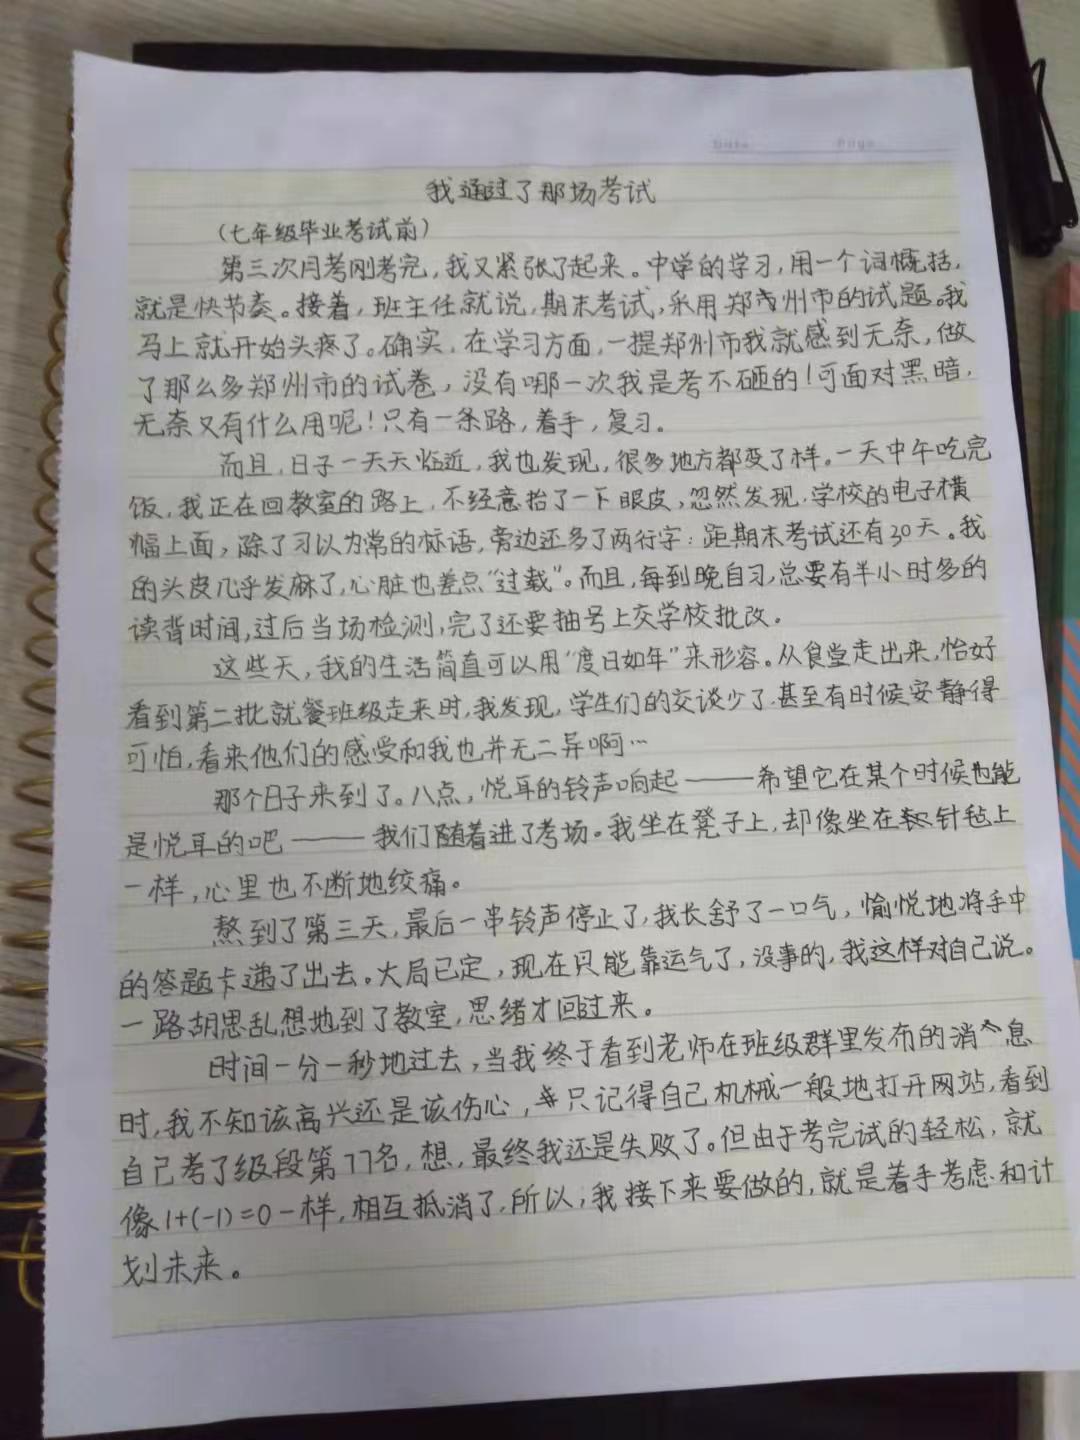 Date Page
我通过了那场考试
（七年级毕业考试前）
第三次月考刚考完，我又紧张了起来。中学的学习，用一个词概括，
就是快节奏。接着，班主任就说，期末考试，采用郑州市的试题。我
马上就开始头疼了。确实，在学习方面，一提郑州市我就感到无奈，做
了那么多郑州市的试卷，没有哪一次我是考不砸的！可面对黑暗，
无奈又有什么用呢！只有一条路，着手，复习。
而且，日子一天天临近，我也发现，很多地方都变了样。一天中午吃完
饭，我正在回教室的路上，不经意抬了一下眼皮，忽然发现，学校的电子横
幅上面，除了习以为常的标语，旁边还多了两行字：距期末考试还有30天。我
的头皮几乎发麻了，心脏也差点“过载”。而且，每到晚自习，总要有半小时多的
读背时间，过后当场检测，完了还要抽号上交学校批改。
这些天，我的生活简直可以用“度日如年”来形容。从食堂走出来，恰好
看到第二批就餐班级走来时，我发现，学生们的交谈少了，甚至有时候安静得
可怕，看来他们的感受和我也并无二异啊…
那个日子来到了。八点，悦耳的铃声响起——希望它在某个时候也能
是悦耳的吧——我们随着进了考场。我坐在凳子上，却像坐在针毡上
一样，心里也不断地绞痛。
熬到了第三天，最后一串铃声停止了，我长舒了一口气，愉悦地将手中
的答题卡递了出去。大局已定，现在只能靠运气了，没事的，我这样对自己说。
一路胡思乱想地到了教室，思绪才回过来。
时间一分一秒地过去，当我终于看到老师在班级群里发布的消息
时，我不知该高兴还是该伤心，只记得自己机械一般地打开网站，看到
自己考了级段第77名，想，最终我还是失败了。但由于考完试的轻松，就
像1+(-1)=0一样，相互抵消了，所以，我接下来要做的，就是着手考虑和计
划未来。